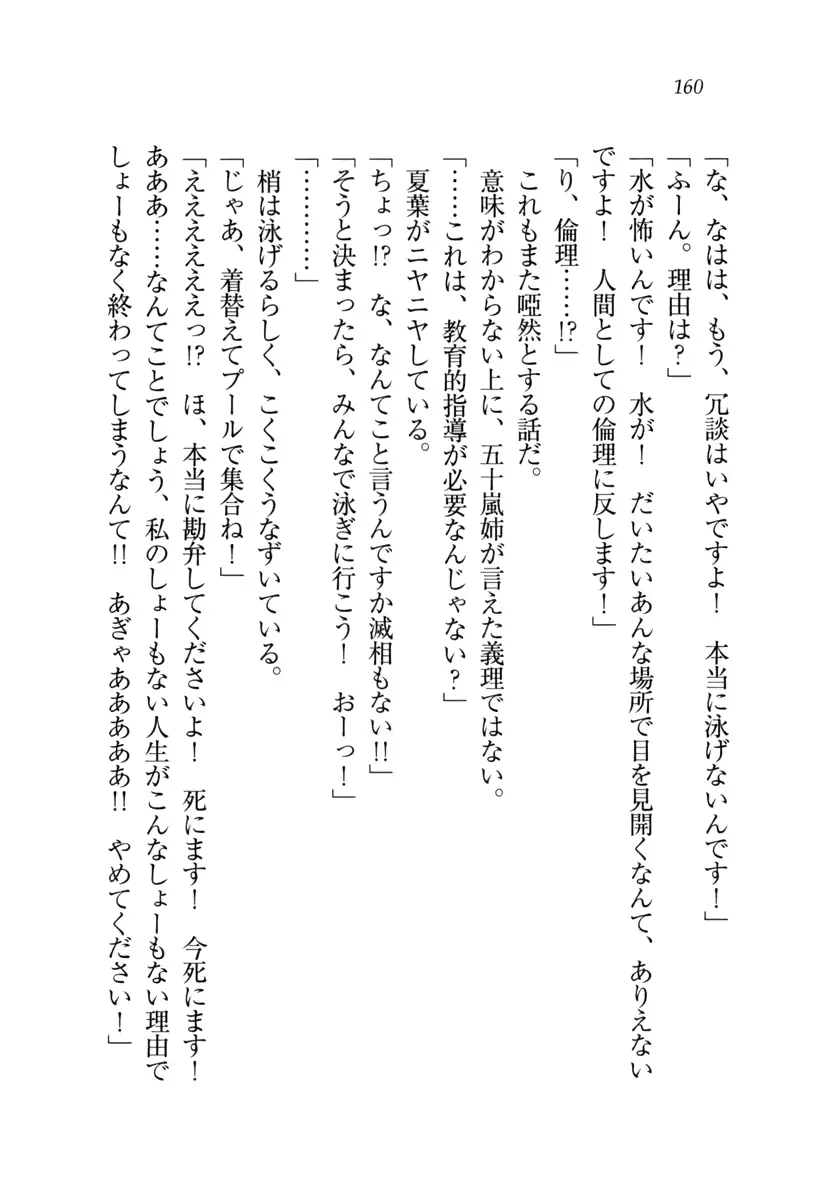 160
「な、なはは、もう、冗談はいやですよ！　本当に泳げないんです！」
「ふーん。理由は？」
「水が怖いんです！　水が！　だいたいあんな場所で目を見開くなんて、ありえない
ですよ！　人間としての倫理に反します！」
「り、倫理……!?」
　これもまた啞然とする話だ。
　意味がわからない上に、五十嵐姉が言えた義理ではない。
「……これは、教育的指導が必要なんじゃない？」
　夏葉がニヤニヤしている。
「ちょっ!?　な、なんてこと言うんですか滅相もない!!」
「そうと決まったら、みんなで泳ぎに行こう！　おーっ！」
「…………」
　梢は泳げるらしく、こくこくうなずいている。
「じゃあ、着替えてプールで集合ね！」
「ええええええっ!?　ほ、本当に勘弁してくださいよ！　死にます！　今死にます！
あああ……なんてことでしょう、私のしょーもない人生がこんなしょーもない理由で
しょーもなく終わってしまうなんて!!　あぎゃあああああ!!　やめてください！」